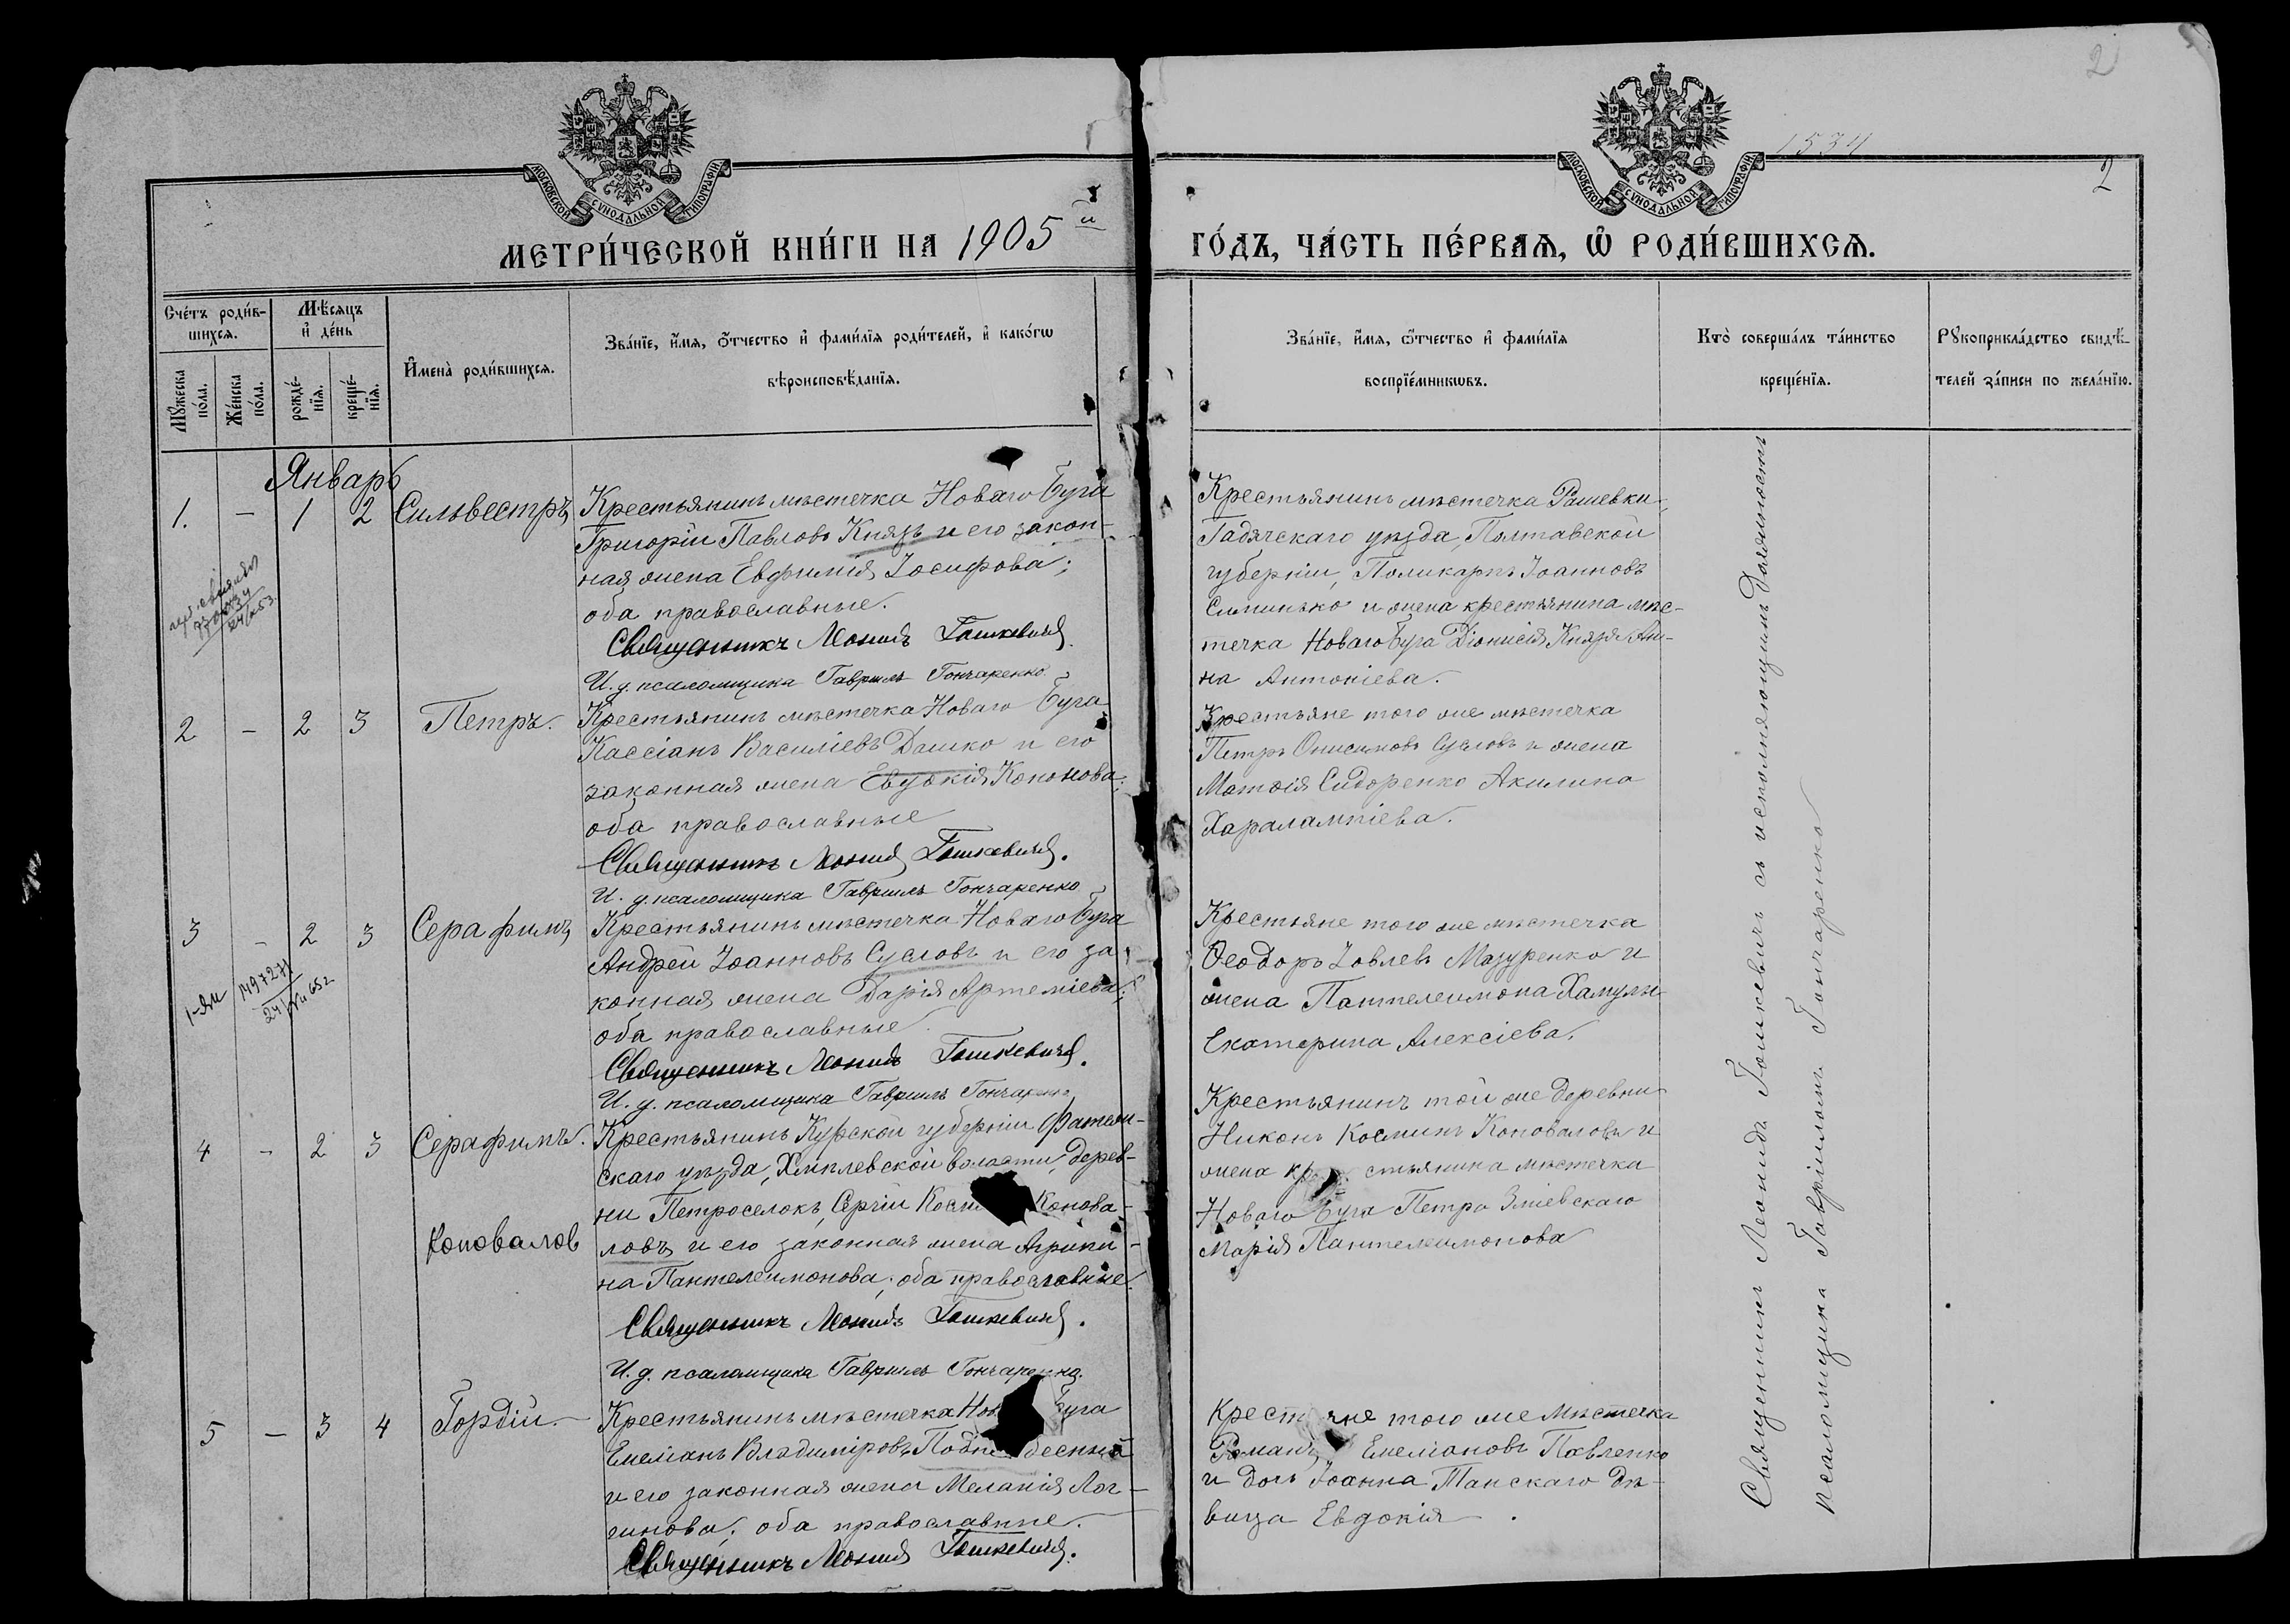 2
1534
2
МОСКОВСКОЙ СѴНОДАЛЬНОЙ ТИПОГРАФІИ
МОСКОВСКОЙ СѴНОДАЛЬНОЙ ТИПОГРАФІИ
МЕТРИ́ЧЕСКОЙ КНИ́ГИ НА 1905 й
ГО́ДЪ, ЧА́СТЬ ПЕ́РВАѦ, Ѡ҆ РОДИ́ВШИХСѦ.
Сче́тъ роди́в-
шихсѧ.
Мꙋ́жеска
по́ла.
Же́нска
по́ла.
Мѣ́сѧцъ
и҆ де́нь
рожде́-
нїѧ.
креще́-
нїѧ.
И҆мена̀ роди́вшихсѧ.
Зва́нїе, и҆́мѧ, ѻ҆́тчество и҆ фами́лїѧ роди́телей, и҆ како́гѡ
вѣроисповѣ́данїѧ.
Зва́нїе, и҆́мѧ, ѻ҆́тчество и҆ фами́лїѧ
воспрїе́мникѡвъ.
Кто̀ соверша́лъ та́инство
креще́нїѧ.
Рꙋкоприкла́дство свидѣ́-
телей за́писи по жела́нїю.
Январь
1. - 1 2 Сильвестръ
Крестьянинъ мѣстечка Новаго Буга
Григорій Павловъ Князь и его закон-
ная жена Евфимія Іосифова;
оба православные.
Священникъ Леонидъ Гошкевичъ.
И. д. псаломщика Гавріилъ Гончаренко
Крестьянинъ мѣстечка Рашевки,
Гадячскаго уѣзда, Полтавской
губерніи, Поликарпъ Іоанновъ
и жена крестьянина мѣс-
течка Новаго Буга Діонисія Князя Ан-
на Антоніева.
2 - 2 3 Петръ.
Крестьянинъ мѣстечка Новаго Буга
Кассіанъ Василіевъ Дашко и его
законная жена Евдокія Кононова;
оба православные
Священникъ Леонидъ Гошкевичъ.
И. д. псаломщика Гавріилъ Гончаренко
Крестьяне того же мѣстечка
Петръ Онисимовъ Сусловъ и жена
Матѳія Сидоренко Акилина
Харалампіева.
3 - 2 3 Серафимъ
1-ЯИ
Крестьянинъ мѣстечка Новаго Буга
Андрей Іоанновъ Сусловъ и его за
конная жена Дарія Артеміева;
оба православные.
Священникъ Леонидъ Гошкевичъ.
И. д. псаломщика Гавріилъ Гончаренко
Крестьяне того же мѣстечка
Ѳеодоръ Іовлевъ Мазуренко и
жена Пантелеимона
Екатерина Алексіева.
4 - 2 3 Серафимъ.
Коновалов
Крестьянинъ Курской губерніи Фатеж-
скаго уѣзда, Хмѣлевской волости, дерев-
ни Петроселокъ, Сергій Косм Конова-
ловъ и его законная жена Агрипи-
на Пантелеимонова; оба православные.
Священникъ Леонидъ Гошкевичъ.
И. д. псаломщика Гавріилъ Гончаренко.
Крестьянинъ той же деревни
Никонъ Косминъ Коноваловъ и
жена кре стьянина мѣстечка
Новаго Буга Петра Зміевскаго
Марія Пантелеимонова
5 - 3 4 Гордій.
Крестьянинъ мѣстечка Нов Буга
Емеліанъ Владиміровъ бесный
и его законная жена Меланія Лог-
гинова; оба православные.
Священникъ Леонидъ Гошкевичъ.
Крестьяне того же мѣстечка
Романъ Емеліановъ Павленко
и дочь Іоанна Танскаго дѣ-
вица Евдокія.
Священникъ Леонидъ Гошкевичъ съ исполняющимъ должность
псаломщика Гавріиломъ Гончаренко